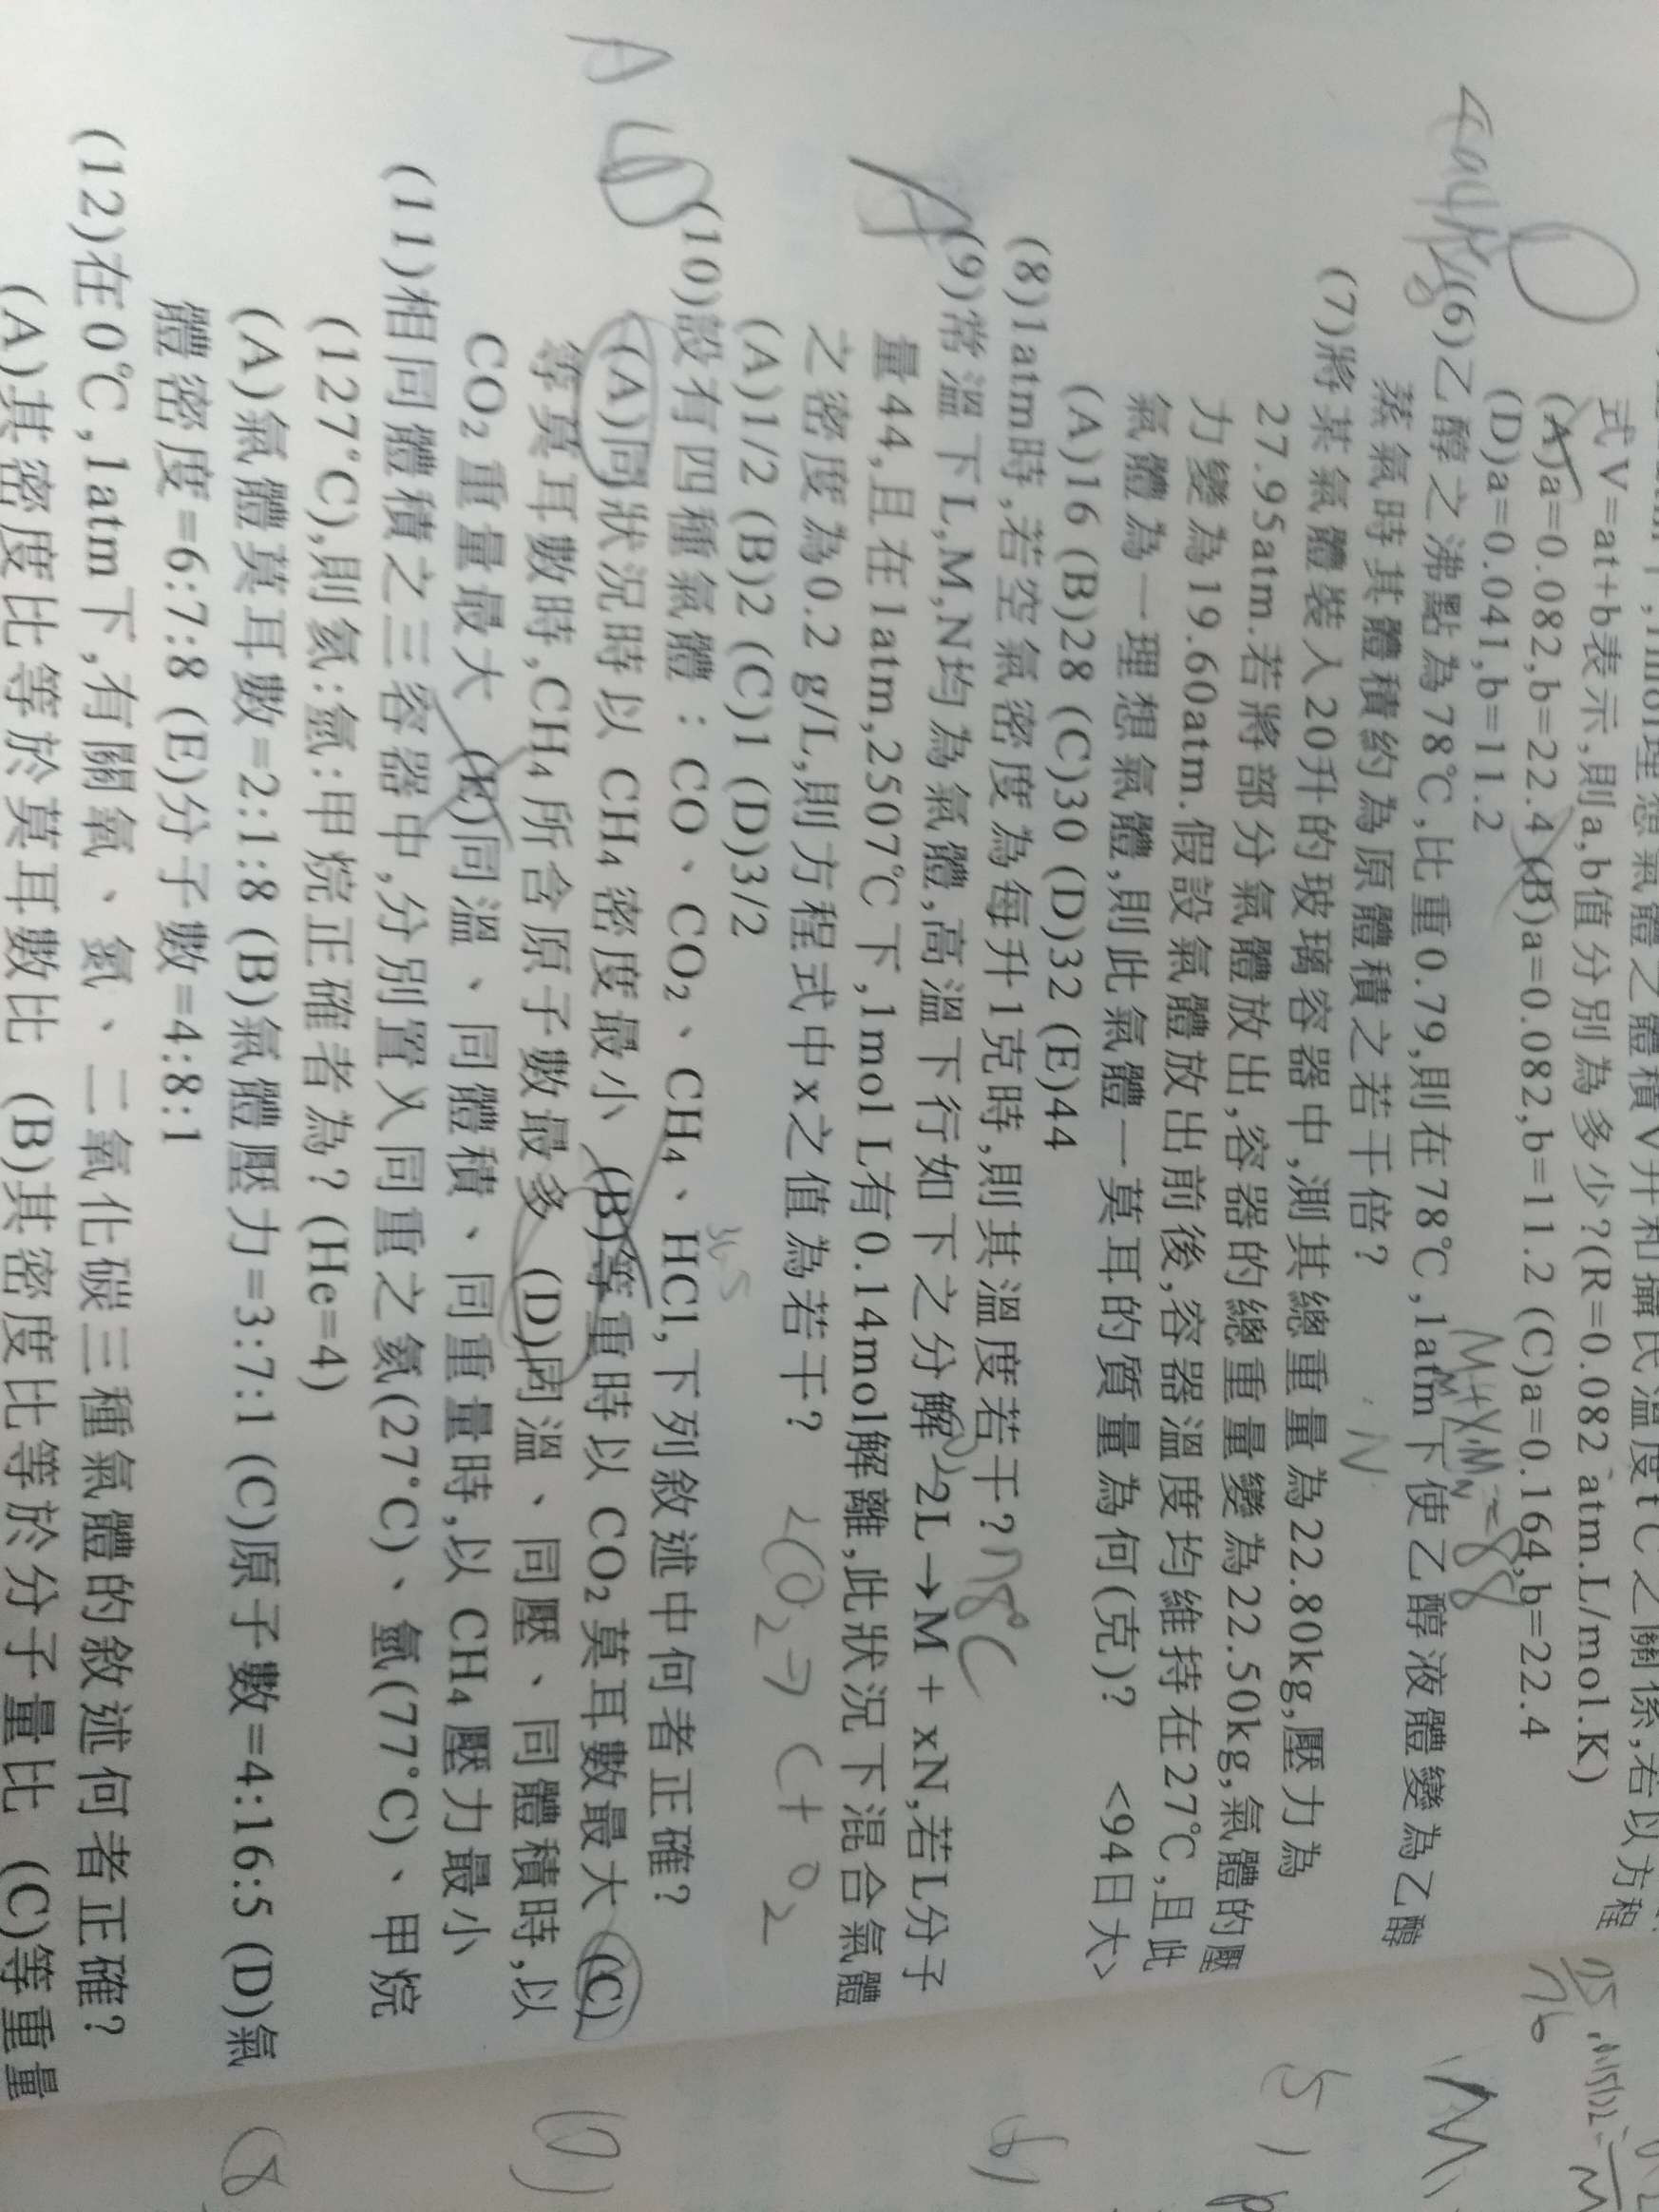 1mol理想氣體之體積V升和攝氏溫度t℃之關係,若以方程
式V=at+b表示,則a,b值分別為多少?(R=0.082 atm.L/mol.K)
(A)a=0.082,b=22.4 (B)a=0.082,b=11.2 (C)a=0.164,b=22.4
(D)a=0.041,b=11.2
(6)乙醇之沸點為78℃,比重0.79,則在78℃,1atm下使乙醇液體變為乙醇
蒸氣時其體積約為原體積之若干倍?
(7)將某氣體裝入20升的玻璃容器中,測其總重量為22.80kg,壓力為
27.95atm.若將部分氣體放出,容器的總重量變為22.50kg,氣體的壓
力變為19.60atm.假設氣體放出前後,容器溫度均維持在27℃,且此
氣體為一理想氣體,則此氣體一莫耳的質量為何(克)? <94日大>
(A)16 (B)28 (C)30 (D)32 (E)44
(8)1atm時,若空氣密度為每升1克時,則其溫度若干? 78℃
(9)常溫下L,M,N均為氣體,高溫下行如下之分解 2L→M + xN,若L分子
量44,且在1atm,2507℃下,1mol L有0.14mol解離,此狀況下混合氣體
之密度為0.2 g/L,則方程式中x之值為若干?
(A)1/2 (B)2 (C)1 (D)3/2
2CO₂→ C+ O₂
36.5
(10)設有四種氣體：CO、CO₂、CH₄、HCl,下列敘述中何者正確?
(A)同狀況時以 CH₄ 密度最小 (B)等重時以 CO₂ 莫耳數最大 (C)
等莫耳數時,CH₄ 所含原子數最多 (D)同溫、同壓、同體積時,以
CO₂ 重量最大 (E)同溫、同體積、同重量時,以 CH₄ 壓力最小
(11)相同體積之三容器中,分別置入同重之氦(27°C)、氫(77°C)、甲烷
(127°C),則氦:氫:甲烷正確者為? (He=4)
(A)氣體莫耳數=2:1:8 (B)氣體壓力=3:7:1 (C)原子數=4:16:5 (D)氣
體密度=6:7:8 (E)分子數=4:8:1
(12)在0℃,1atm下,有關氧、氮、二氧化碳三種氣體的敘述何者正確?
(A)其密度比等於莫耳數比 (B)其密度比等於分子量比 (C)等重量